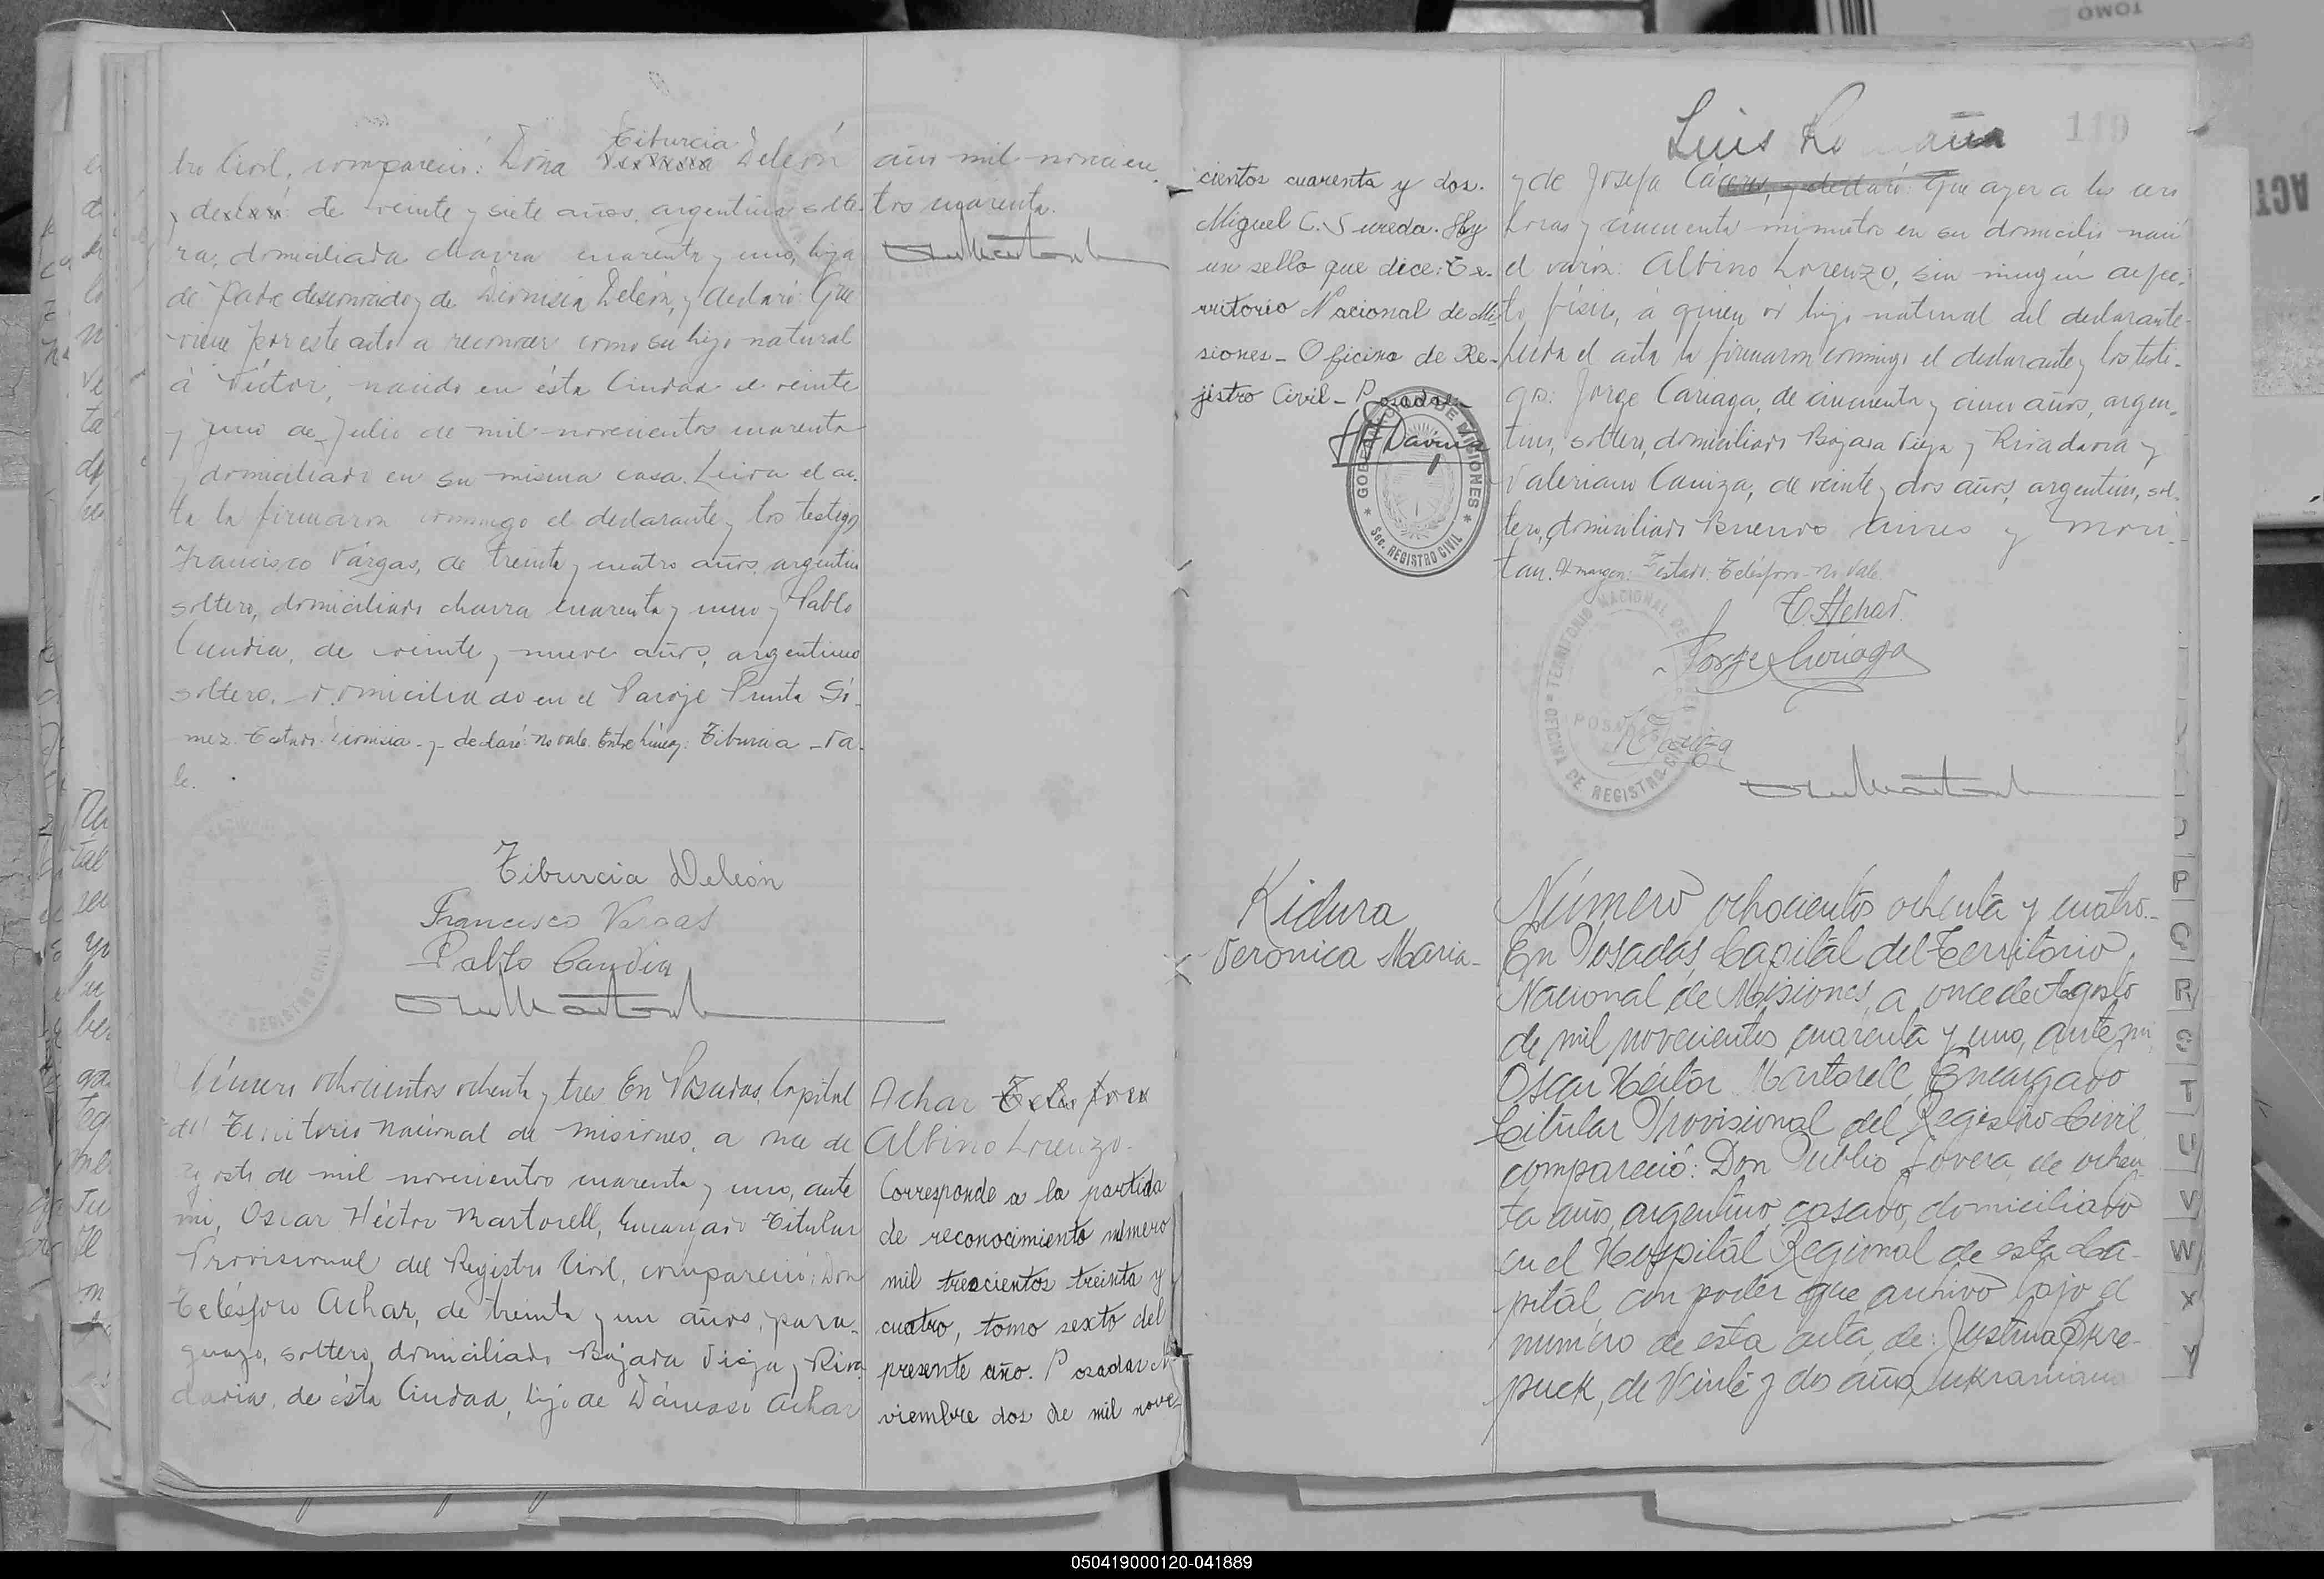 tro Civil, compareció: Doña Tiburcia Deleón
de veinte y siete años, argentina solte-
ra, domiciliada chacra cuarenta y uno, hija
de Padre desconocido y de Dionisia Deleón, y declaró: Que
viene por este acto a reconocer como su hijo natural
á Víctor, nacido en ésta Ciudad el veinte
y uno de Julio de mil novecientos cuarenta
y domiciliado en su misma casa. Leida el ac-
ta la firmaron conmigo el declarante y los testigos
Francisco Vargas, de treinta y cuatro años, argentino
soltero, domiciliado chacra cuarenta y uno y Pablo
Candia, de veinte y nueve años, argentino
soltero, domiciliado en el Paraje Punta Gó-
mez. Testado: Dionisia - y - declaró: no vale. Entre líneas: Tiburcia - Va-
le.
Tiburcia Deleón
Francisco Vargas
Pablo Candia
Número ochocientos ochenta y tres En Posadas, Capital
del Territorio Nacional de Misiones, a once de
Agosto de mil novecientos cuarenta y uno, ante
mi, Oscar Héctor Martorell, Encargado Titular
Provisional del Registro Civil, compareció: Don
Telésforo Achar, de treinta y un años, para-
guayo, soltero, domiciliado Bajada Vieja y Riva-
davia, de ésta Ciudad, hijo de Dámaso Achar
año mil novecien-
tos cuarenta.
Achar Telésforo
Albino Lorenzo.
Corresponde a la partida
de reconocimiento número
mil trescientos treinta y
cuatro, tomo sexto del
presente año. Posadas No-
viembre dos de mil nove-
cientos cuarenta y dos.
Miguel C. Sureda. Hay
un sello que dice: Te-
rritorio Nacional de Mi-
siones - Oficina de Re-
jistro Civil - Posadas
GOBERNACION DE MISIONES
Sec. REGISTRO CIVIL
Luis Ro aña
119
y de Josefa Cáceres, y declaró: Que ayer a las
horas y cincuenta minutos en su domicilio nació
el varón: Albino Lorenzo, sin ningún defec-
to físico, a quien ví hijo natural del declarante.
Leida el acta la firmaron conmigo el declarante y los testi-
gos: Jorge Cariaga, de cincuenta y cinco años, argen-
tino, soltero, domiciliado Bajada Vieja y Rivadavia y
Valeriano Caniza, de veinte y dos años, argentino, sol-
tero, domiciliado Buenos Aires y
Al margen: Testado: Telésforo - no vale.
T. Achar.
Jorge Cariaga
TERRITORIO NACIONAL DE
OFICINA DE REGISTRO CIVIL
POSADAS
V Caniza
Kidura
Veronica Maria-
Número ochocientos ochenta y cuatro.-
En Posadas, Capital del Territorio
Nacional de Misiones, a once de Agosto
de mil novecientos cuarenta y uno, ante mi,
Oscar Héctor Martorell, Encargado
Titular Provisional del Registro Civil,
compareció: Don Publio Jovera, de ochen-
ta años, argentino, casado, domiciliado
en el Hospital Regional de esta Ca-
pital, con poder que archivo bajo el
numero de esta acta, de: Justina Skre-
puck, de Veinte y dos años, ukraniana
P
Q
R
S
T
U
V
W
X
Y
TOMO
050419000120-041889